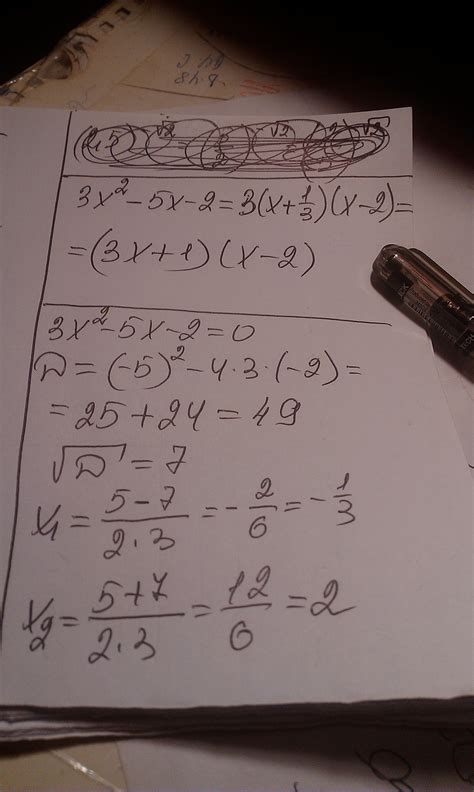 3x² - 5x - 2 = 3(x + 1/3)(x - 2) =
= (3x + 1)(x - 2)
3x² - 5x - 2 = 0
D = (-5)² - 4 · 3 · (-2) =
= 25 + 24 = 49
√D = 7
x₁ = (5 - 7)/(2 · 3) = - 2/6 = - 1/3
x₂ = (5 + 7)/(2 · 3) = 12/6 = 2